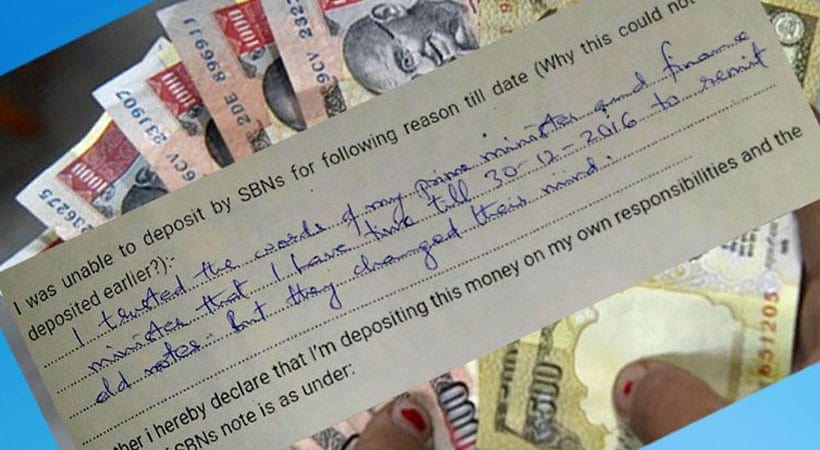 896911
2DE
9CV 232
1000
6CV 231907
1000
236275
1000
I was unable to deposit by SBNs for following reason till date (Why this could not
deposited earlier?):-
I trusted the words of my prime minister and finance
minister that I have time till 30-12-2016 to remit
old notes. But they changed their mind.
ther i hereby declare that I'm depositing this money on my own responsibilities and the
SBNs note is as under:
500
651205